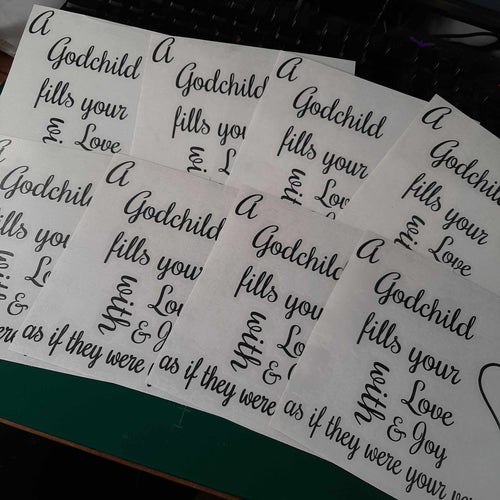 A
Godchild
fills your
wi Love
A
Godchild
fills you
wi L
A
Godchild
fills your
wit Lov
A
Godchild
fills your
wit Love
Godchild
ills you
with Lo
&
A
Godchild
fills your
with Lov
& J
as if they were
A
Godchild
fills you
with Lo
&
as if they were
A
Godchild
fills your
with Love
& Joy
as if they were your